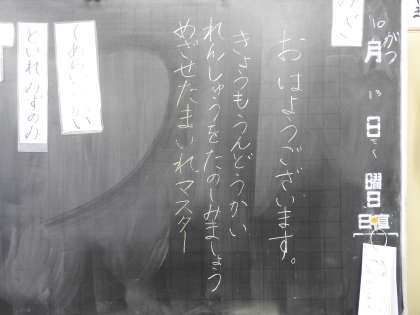 10
がつ
月
13
日
曜
日
日直
おはようございます。
きょうもうんどうかい
れんしゅうをたのしみましょう
めざせたまいれマスター
といれみずのみ